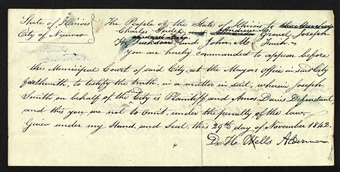 State of Illinois } The People of the State of Illinois to
City of Nauvoo } Charles
H. Jackson and John M. Finch.
You are hereby commanded to appear before
the Municipal Court of said City, at the Mayors Office in said City
forthwith, to testify the truth, in a matter in suit, wherein Joseph
Smith on behalf of the City is Plaintiff and Amos Davis Defendant
and this you are not to omit, under the penalty of the law.
Given under my Hand and Seal this 29th day of November 1842
D. H. Wells Alderman